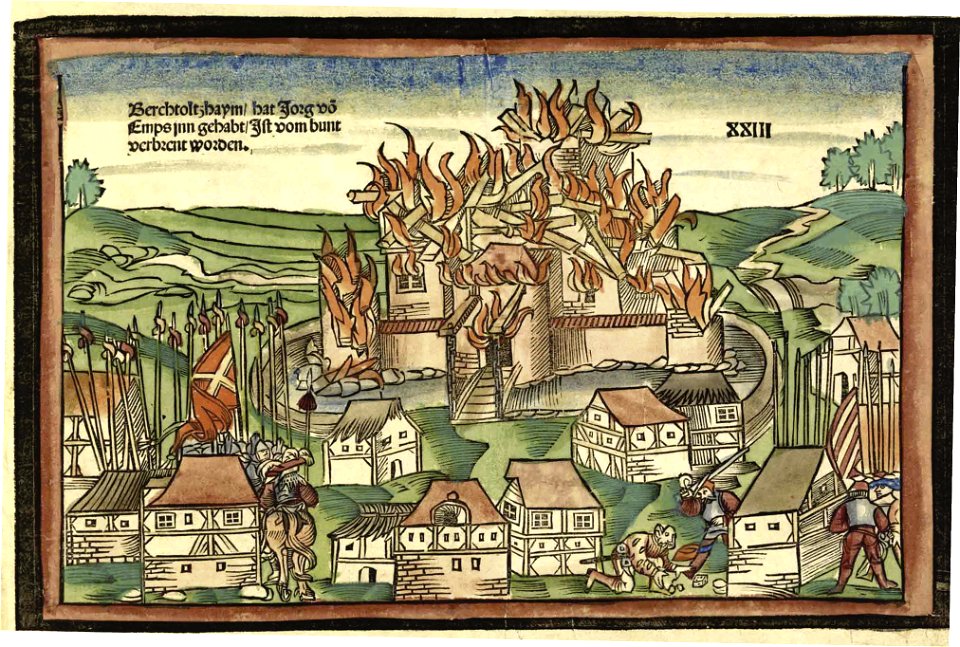 Berchtoltzhaym/ hat Jorg võ
Emps jnn gehabt/ Jst vom bunt
verbrent worden.
XXIII